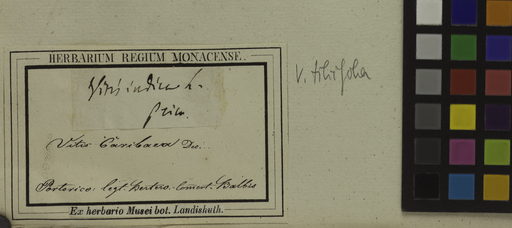 HERBARIUM REGIUM MONACENSE.
Vitis indica L.
V. tiliifolia
Vitis Caribaea Dec.
Portorico: legt. Bertero. comut. Balbis
Ex herbario Musei bot. Landishuth.